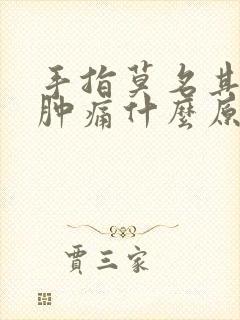 手指莫名其
肿痛什麼原
賈三家